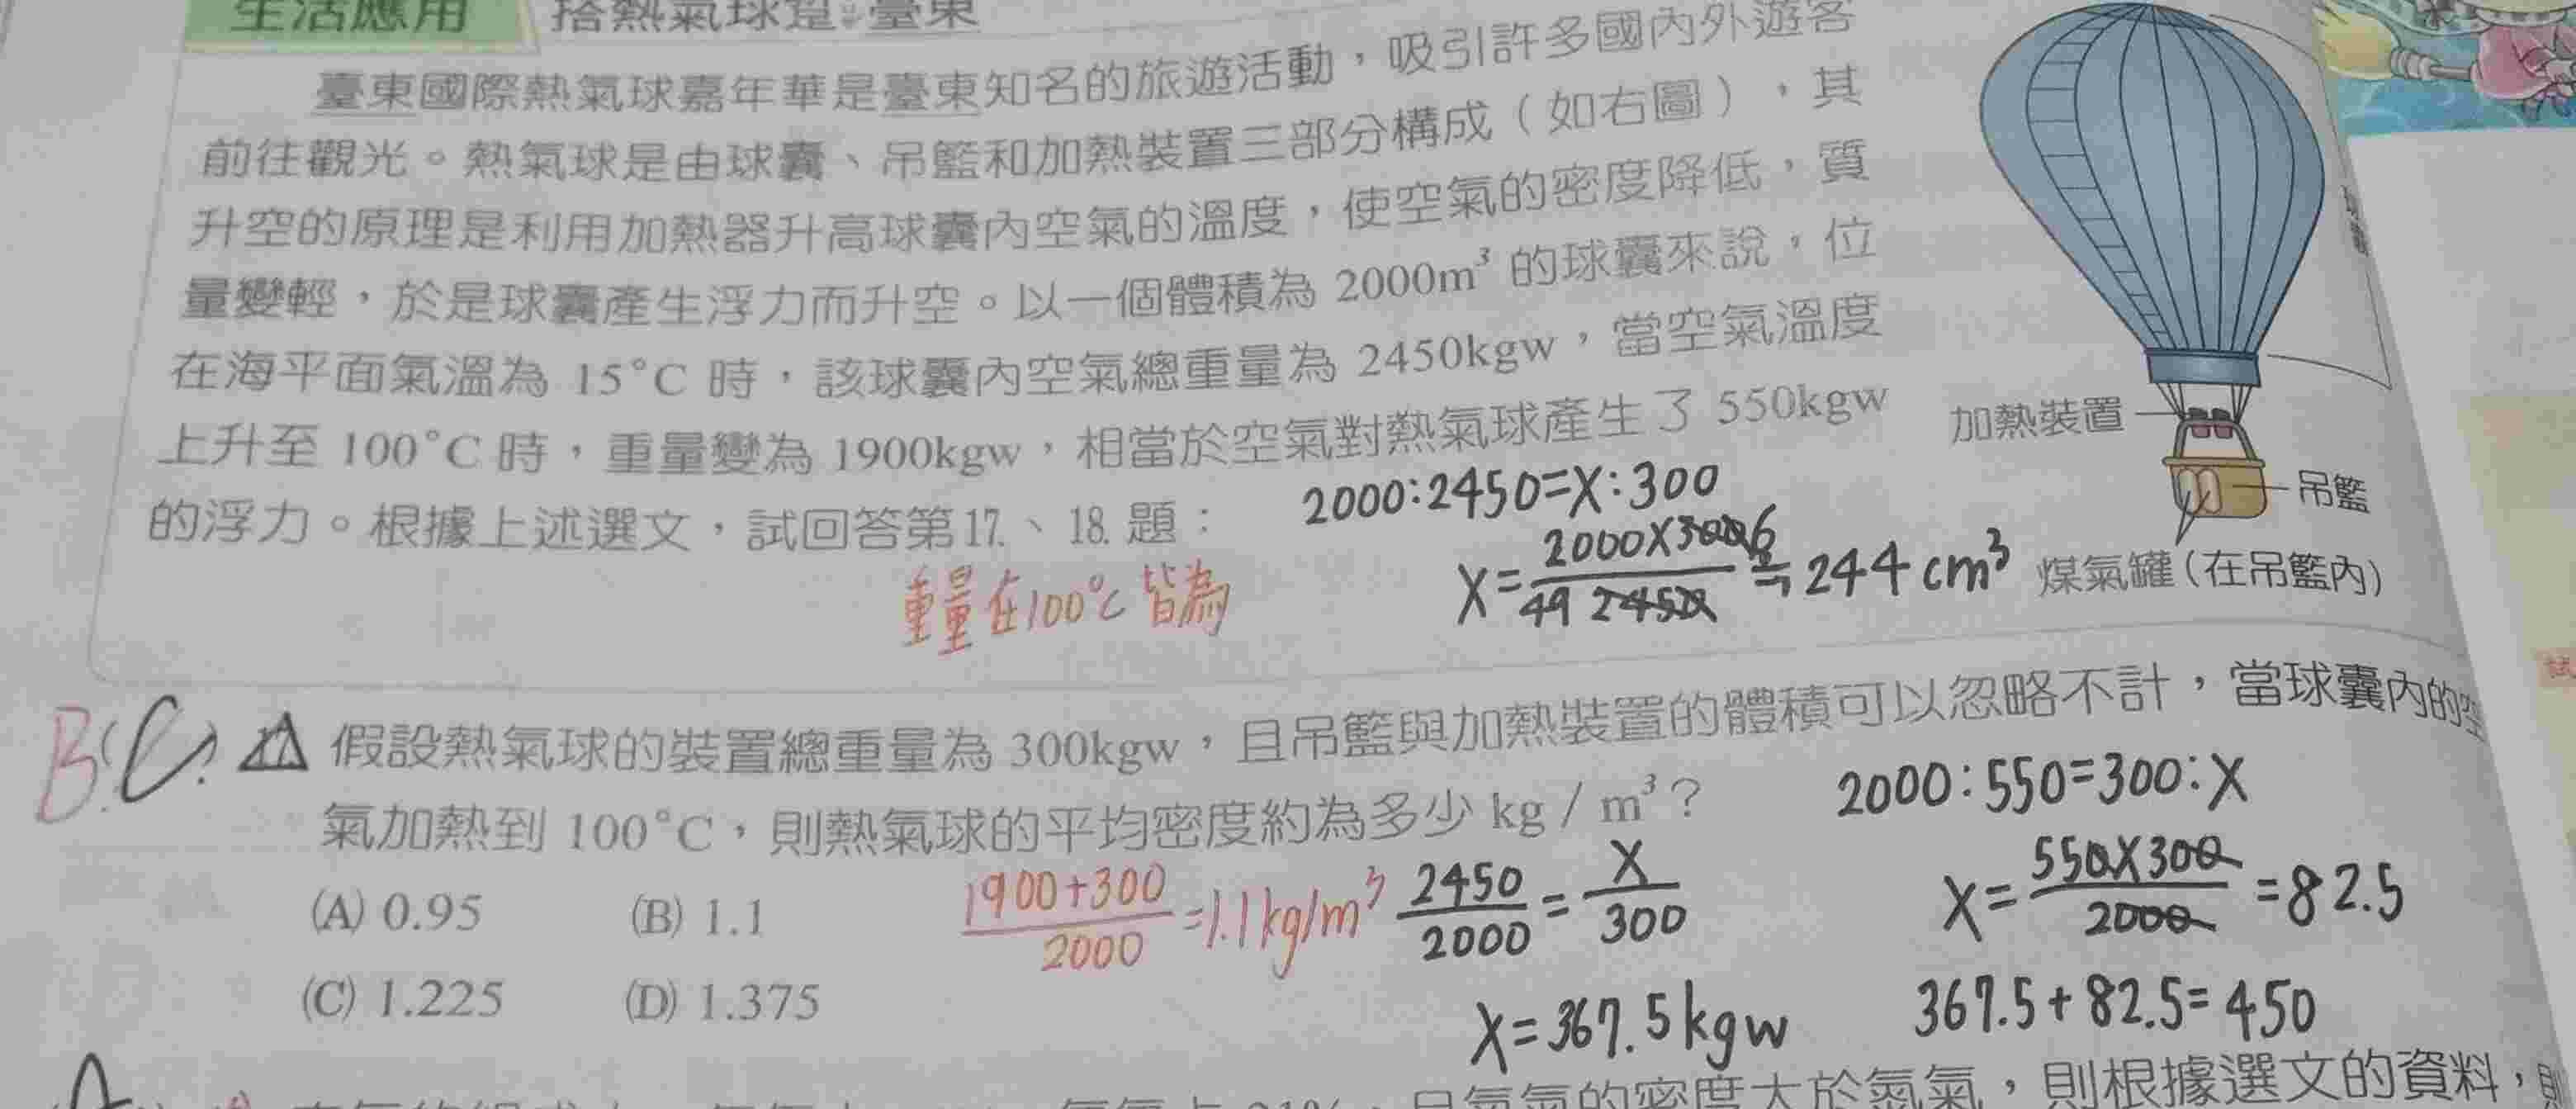 生活應用 搭熱氣球遊臺東
臺東國際熱氣球嘉年華是臺東知名的旅遊活動，吸引許多國內外遊客
前往觀光。熱氣球是由球囊、吊籃和加熱裝置三部分構成（如右圖），其
升空的原理是利用加熱器升高球囊內空氣的溫度，使空氣的密度降低，質
量變輕，於是球囊產生浮力而升空。以一個體積為 2000m³ 的球囊來說，位
在海平面氣溫為 15°C 時，該球囊內空氣總重量為 2450kgw，當空氣溫度
上升至 100°C 時，重量變為 1900kgw，相當於空氣對熱氣球產生了 550kgw
的浮力。根據上述選文，試回答第17.、18. 題：
加熱裝置
吊籃
煤氣罐(在吊籃內)
2000:2450=X:300
X=2000X300 6/49 2450 ≒244cm³
重量在100°C皆為
B (C) 17 假設熱氣球的裝置總重量為 300kgw，且吊籃與加熱裝置的體積可以忽略不計，當球囊內的空
氣加熱到 100°C，則熱氣球的平均密度約為多少 kg / m³？
2000:550=300:X
(A) 0.95 (B) 1.1
1900+300/2000=1.1kg/m³
2450/2000=X/300
X=550X300/2000=82.5
(C) 1.225 (D) 1.375
X=367.5kgw
367.5+82.5=450
的密度大於氮氣，則根據選文的資料，則